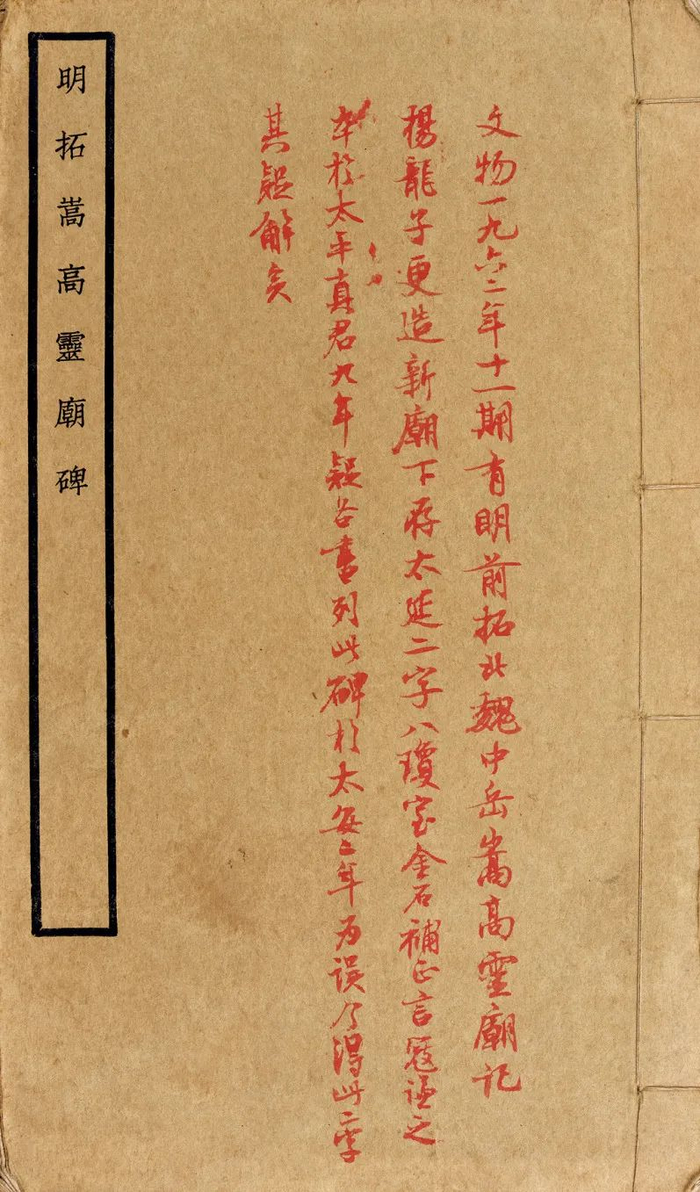 文物一九六二年十一期有明前拓北魏中岳嵩高靈廟記
楊龍子更造新廟下存太延二字八瓊室金石補正言寇謙之
卒於太平真君九年疑各書列此碑於太安二年為誤今得此二字
其疑解矣
明拓嵩高靈廟碑